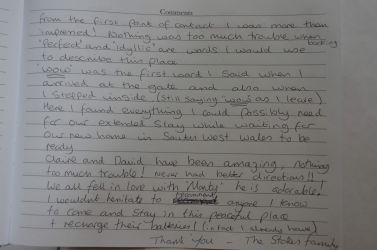 Comments
from the first point of contact I was more than
impressed! Nothing was too much trouble when booking
'Perfect' and 'idyllic' are words I would use
to describe this place
'WOW' was the first word I said when I
arrived at the gate and also when
I stepped inside (still saying 'wow' as I leave)
Here I found everything I could possibly need
for our extended stay while waiting for
our new home in South West Wales to be
ready
Claire and David have been amazing, nothing
too much trouble! Never had better directions!!
We all fell in love with 'Monty' he is adorable!
I wouldnt hesitate to recommend anyone I know
to come and stay in this peaceful place
+ recharge their batteries! (infact I already have)
Thank you - The Stokes family